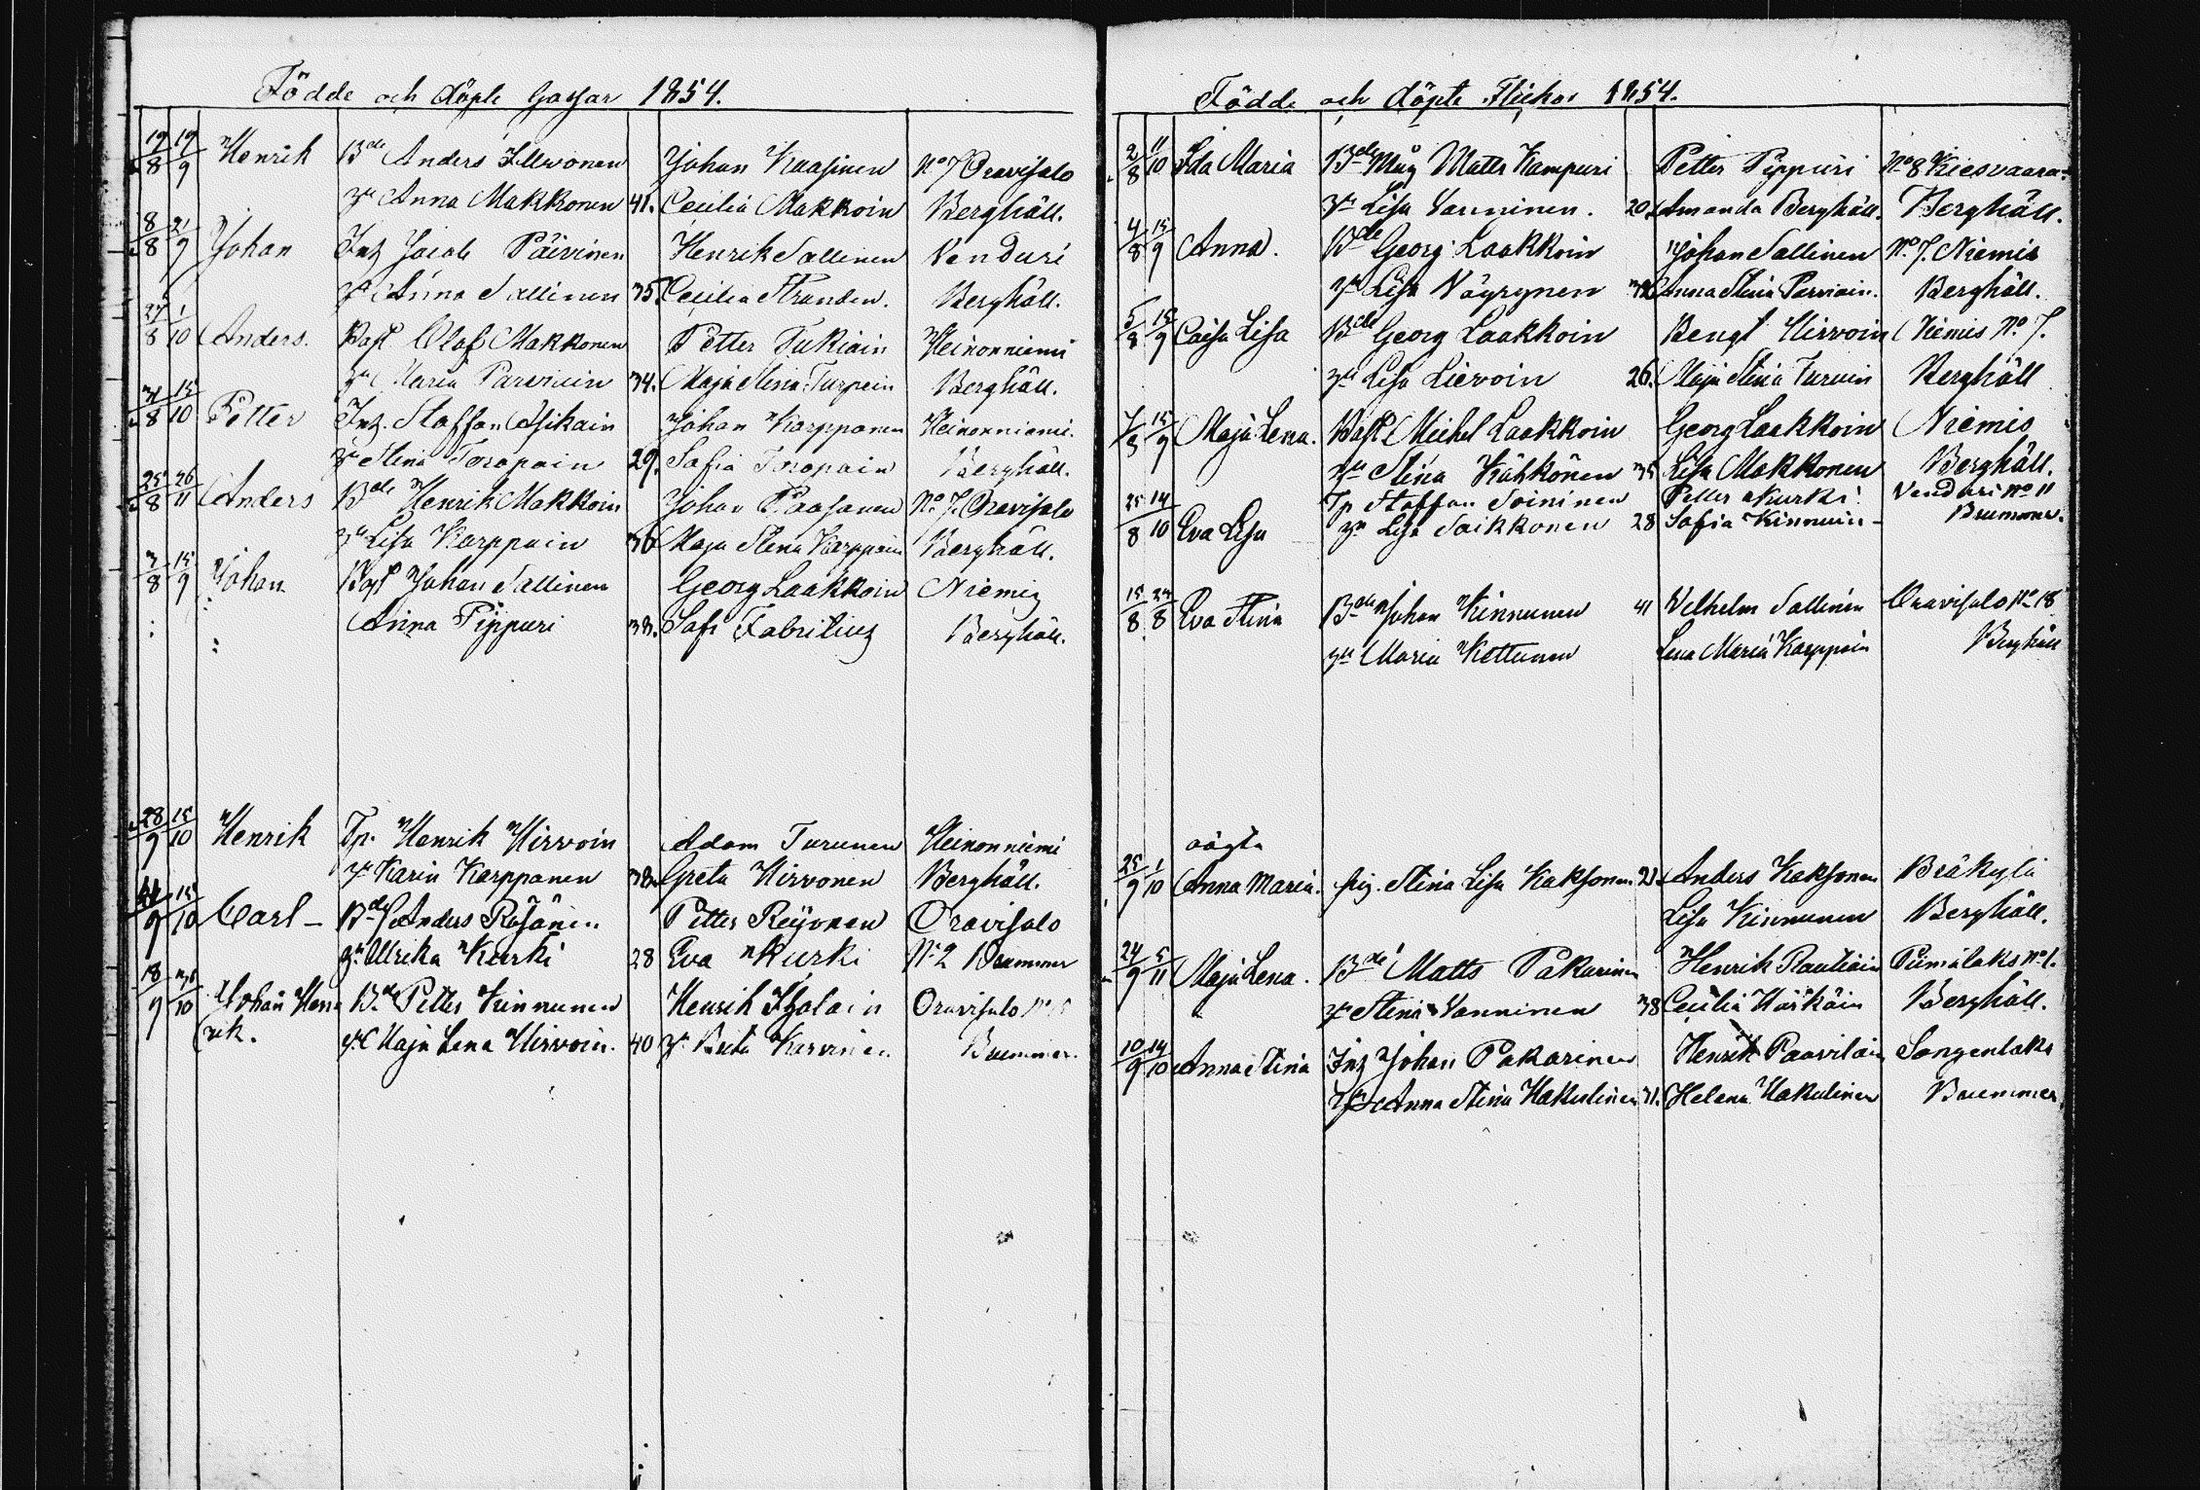 Födde och döpte Gossar 1854.
19/8 19/9 Henrik Bde Anders Illwonen Johan Kaasinen No 7 Oravisalo
hu Anna Makkonen 41. Cecilia Makkoin Berghäll.
8/8 21/9 Johan Inh Jacob Päivinen Henrik Sallinen Venduri
hu Anna Sallinen 35. Cecilia Strandm. Berghäll.
27/8 1/10 Anders. Bost Olof Makkonen Petter Tukiain Heinonniemi
hu Maria Parviain 34. Maja Stina Turpein Berghäll.
31/8 15/10 Petter Inh. Staffan Asikain Johan Karpponen Heinonniemi.
hu Stina Toropain 29. Safia Toropain Berghäll.
25/8 26/11 Anders Bde Henrik Makkoin Johan Paasonen No 7. Oravisalo
hu Lisa Karppain 36 Maja Stina Karppain Berghäll.
3/8 15/9 Johan Bost Johan Sallinen Georg Laakkoin Niemis
Anna Pippuri 38. Safi Fabritius Berghäll.
28/9 15/10 Henrik Tp. Henrik Hirvoin Adam Turunen Heinonniemi
hu Karin Karppanen 38. Greta Hirvonen Berghäll.
15/10 Carl – Bde Anders Räsänen Petter Reijonen Oravisalo
hu Ulrika Kurki 28 Eva Kurki No 2 Brummer
18/9 Johan Hen Bde Petter Kinnunen Henrik Ikolain Oravisalo
rik. hu Maja Lena Hirvoin. 40 hu Brita Karvinen Brummer.
Födde och döpte Flickor 1854.
2/8 11/10 Ida Maria Bde Måg Matts Kampuri Petter Pippuri No 8 Kiesvaara
hu Lisa Vanninen. 20. Amanda Berghäll. Berghäll.
4/8 15/9 Anna. Bde Georg Laakkoin Johan Sallinen No 7. Niemis
hu Lisa Väyrynen Anna Stina Parviain. Berghäll.
5/8 15/9 Caisa Lisa Bde Georg Laakkoin Bengt Hirvoin Niemis No 7.
hu Lisa Lievoin 26. Maja Stina Turuin Berghäll
7/8 15/9 Maja Lena. Bost Michel Laakkoin Georg Laakkoin Niemis
hu Stina Kähkönen 35 Lisa Makkonen Berghäll.
25/8 14/10 Eva Lisa Tp Staffan Soininen Petter Kurki Venduri no 11
hu Lisa Saikkonen 28 Safia Kinnuin – Brummer.
15/8 24/8 Eva Stina Bde Johan Kinnunen 41 Vilhelm Sallinen Oravisalo No 18
hu Maria Kettunen Lena Maria Karppain Berghäll
oägta
25/9 1/10 Anna Maria. pig. Stina Lisa Kaksonen 21. Anders Kaksonen Bräkylä
Lisa Kinnunen Berghäll.
24/9 5/11 Maja Lena. Bde Matts Pakarinen Henrik Rautiain Piimälaks No 1.
hu Stina Vanninen 38 Cecilia Härkäin Berghäll.
10/9 14/10 Anna Stina Inh Johan Pakarinen Henrik Paavilain Sangenlaks
hu Anna Stina Hakulinen 31. Helena Hakulinen Brummer